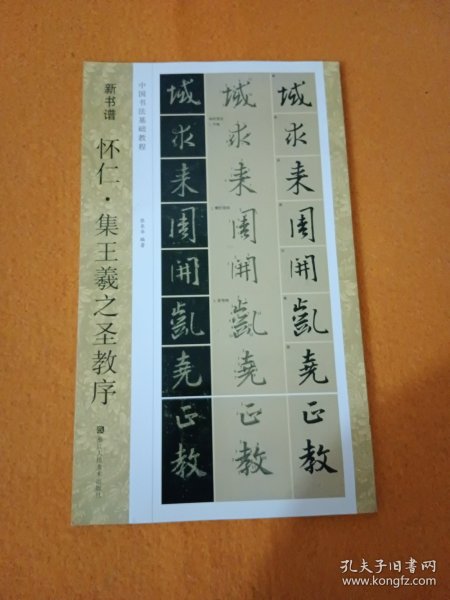 新书谱
怀仁·集王羲之圣教序
浙江人民美术出版社
中国书法基础教程
编著
域 域 域
求 求 求
来 来 来
周 周 周
开 开 开
凯 凯 凯
尧 尧 尧
正 正 正
教 教 教
孔夫子旧书网
www.kongfz.com